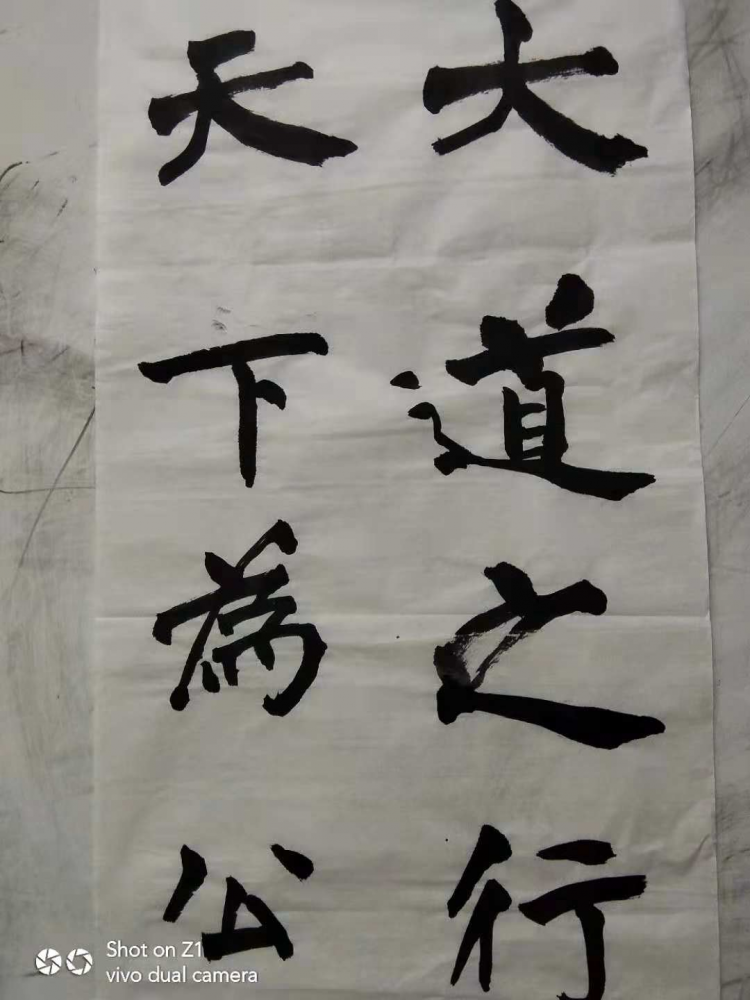 大道之行
天下為公
Shot on Z1
vivo dual camera